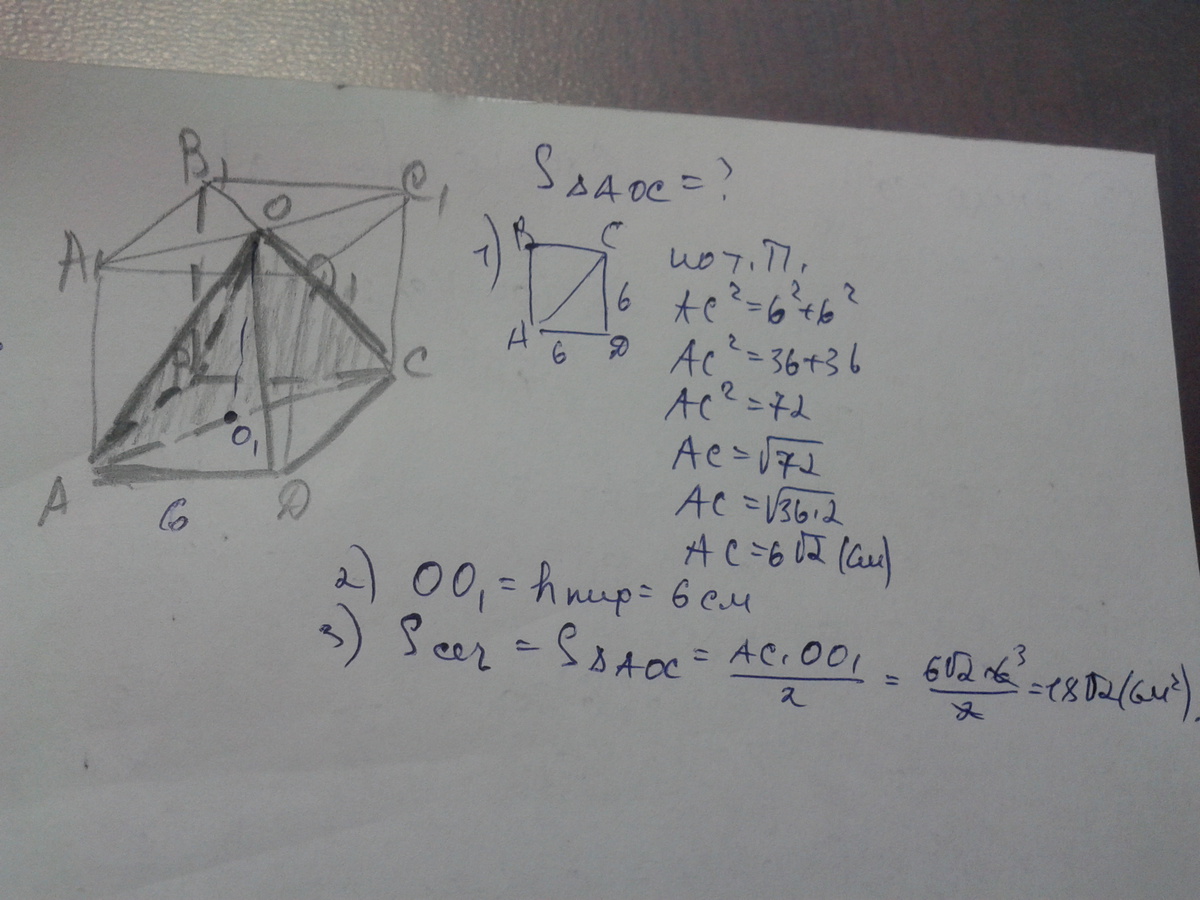 B₁
C₁
O
A₁
D₁
B
C
O₁
A
6
D
S△AOC = ?
1)
B C
6
A 6 D
по т. П.
AC² = 6² + 6²
AC² = 36 + 36
AC² = 72
AC = √72
AC = √36·2
AC = 6√2 (см)
2) OO₁ = hпир = 6 см
3) Sсеч = S△AOC = AC·OO₁/2 = 6√2·6³/2 = 18√2 (см²).